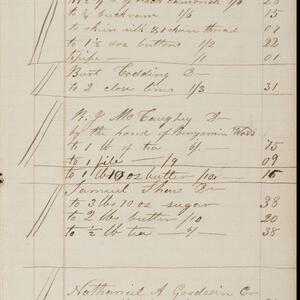 to ¾ buckram 1/3 15
to skein silk & 1 skein thread 07
to 1½ doz buttons 1/2 22
1 pipe — /1 01
Burt Codding Dr
to 2 close lines 1/3 31
B. J. McCaughey Dr
by the hand of Benjamin
to 1 lb of tea 6/. 75
to 1 file — /9 09
to 1 lb 10 oz butter /10 16
Samuel Shaw Dr
to 3 lb 10 oz sugar 38
to 2 lbs butter /10 20
to ½ lb tea — 6/— 38
Nathaniel A Goodwin Cr